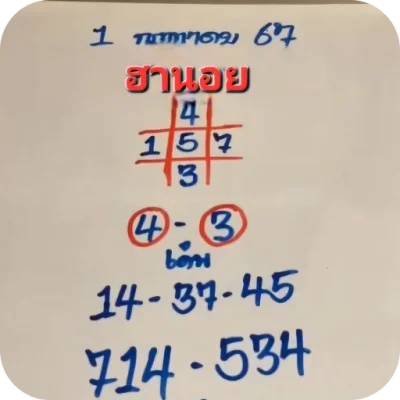 1 กรกฎาคม 67
ฮานอย
4
1 5 7
3
4 - 3
เด่น
14 - 37 - 45
714 - 534